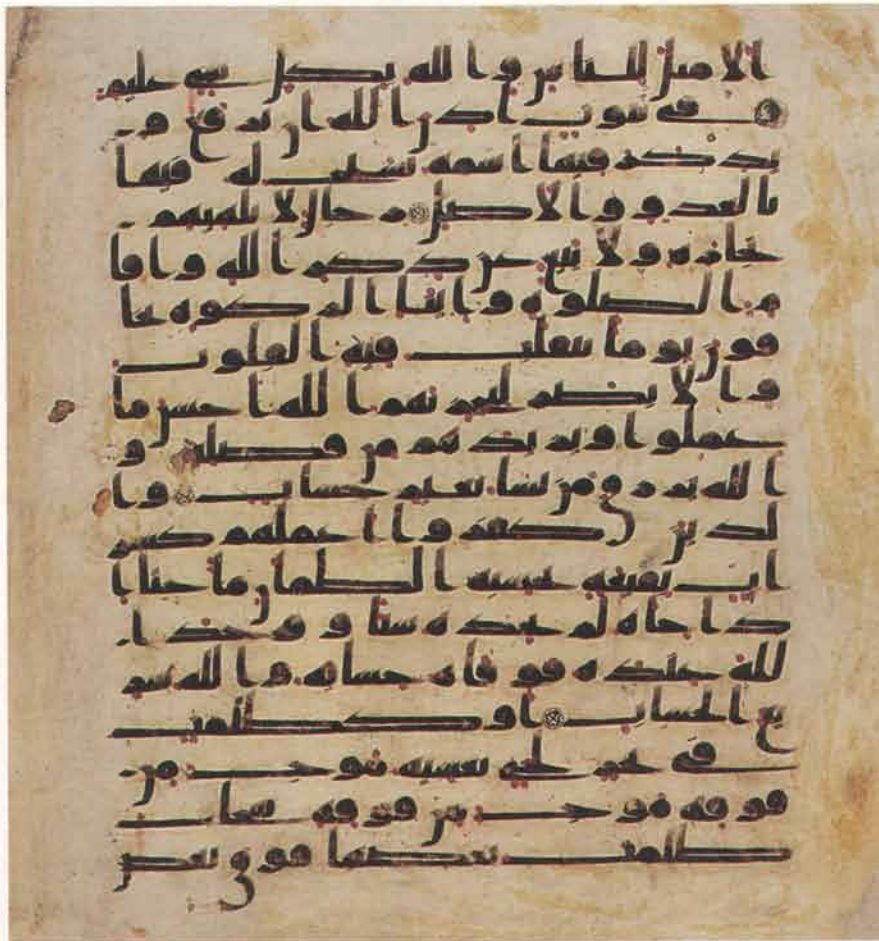 الامثل للناس والله بكل شي عليم
في بيوت اذن الله ان ترفع و
يذكر فيها اسمه يسبح له فيها
بالغدو والاصل رجال لا تلهيهم
تجره ولا بيع عن ذكر الله واقا
م الصلوة وايتا الزكوة يخا
فون يوما تتقلب فيه القلوب
والابصر ليجزيهم الله احسن ما
عملوا ويزيدهم من فضله و
الله يرزق من يشا بغير حساب وا
لذين كفروا اعملهم كسر
اب بقيعه يحسبه الظمان ما حتا ا
ذا جاه لم يجده شيا ووجد ا
لله عنده فوفاه حسابه والله سر
يع الحساب او كظلمت
في بحر لجي يغشيه موج من
فوقه موج من فوقه سحاب
ظلمت بعضها فوق بعض